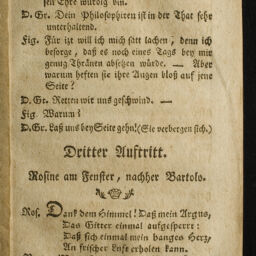 sen Ehre würdig bin.
D. Gr. Dein Philosophiren ist in der That sehr
unterhaltend.
Fig. Für izt will ich mich satt lachen, denn ich
besorge, daß es noch eines Tags bey mir
genug Thränen absetzen würde. — Aber
warum heften sie ihre Augen bloß auf jene
Seite?
D. Gr. Retten wir uns geschwind. —
Fig. Warum?
D. Gr. Laß uns beySeite gehn! (Sie verbergen sich.)
Dritter Auftritt.
Rosine am Fenster, nachher Bartolo.
Ros. Dank dem Himmel! Daß mein Argus,
Das Gitter einmal aufgesperrt:
Daß sich einmal mein banges Herz,
An frischer Luft erholen kann.